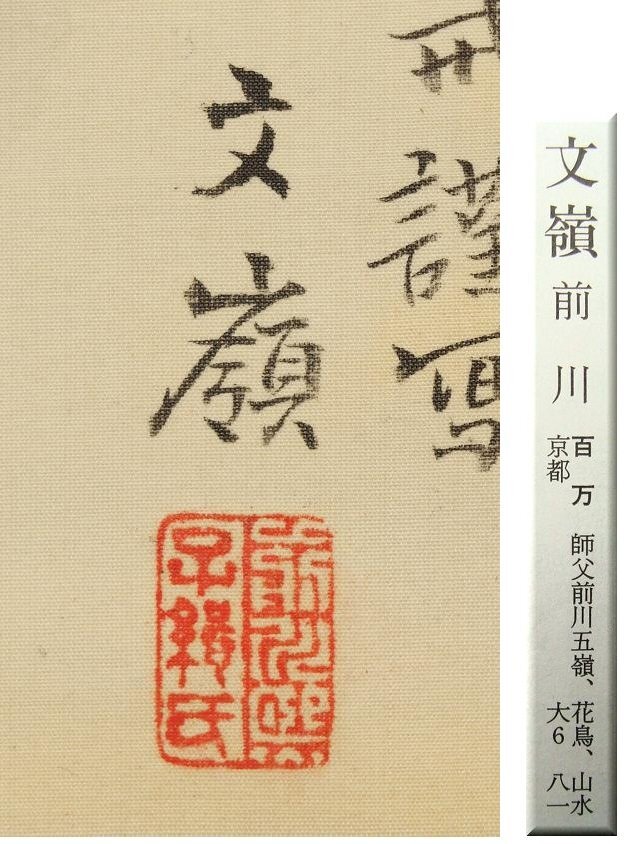 文嶺 前川
百万 師父前川五嶺、花鳥、山水
京都 大6 八一
謹写
文嶺